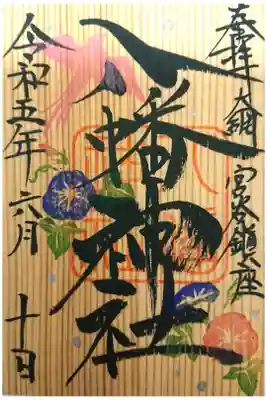 奉拝 大網 宮谷鎮座
八幡神社
令和五年 六月 十日